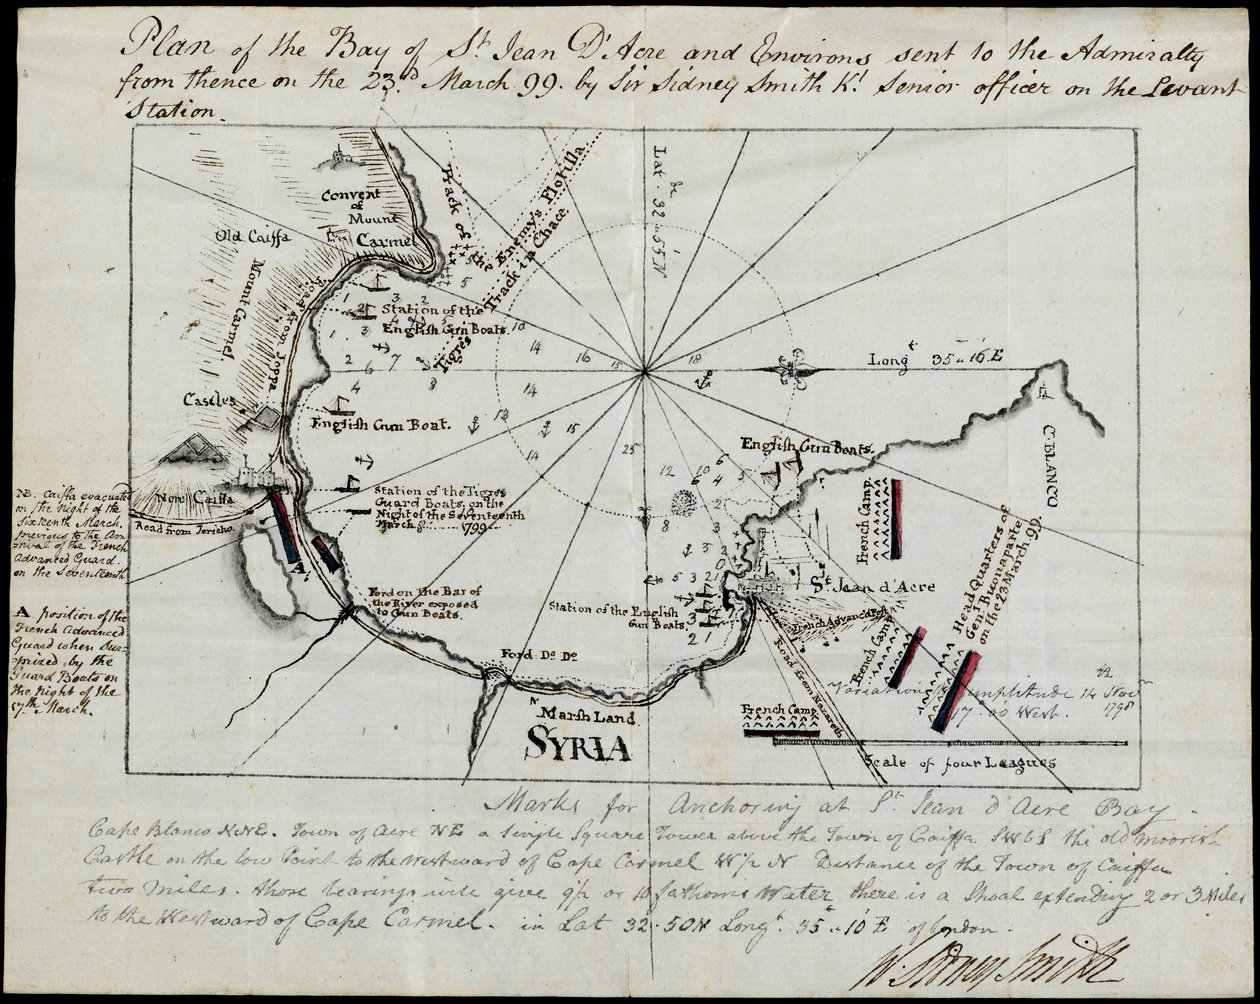 Plan of the Bay of St Jean D'Acre and Environs sent to the Admiralty
from thence on the 23.d March 99. by Sir Sidney Smith Kt. Senior officer on the Levant
Station.
Convent
of
Mount
Carmel
Old Caiffa
Mount Carmel
Road from Joppa
Track of the Enemy's Flotilla
Tigres Track in Chace
Lat.de 32 " 55' N
Longt 35 " 16' E
Station of the
English Gun Boats.
Castles
English Gun Boat.
English Gun Boats.
C. BLANCO
New Caiffa
Road from Jericho.
Station of the Tigres
Guard Boats, on the
Night of the Seventeenth
March 1799
NB. Caiffa evacuated
on the Night of the
Sixteenth March.
previous to the Ar-
-rival of the French
Advanced Guard.
on the Seventeenth
A position of the
French Advanced
Guard when Sur-
-prized by the
Guard Boats on
the Night of the
17th March.
A
Ford on the Bar of
the River exposed
to Gun Boats.
Station of the English
Gun Boats.
St. Jean d'Acre
French Camp.
Head Quarters of
Genl Buonaparte
on the 23 March 99.
French Advanced Post
French Camp
Road from Nazareth
Ford Do Do
Marsh Land
SYRIA
French Camp
Variation Amplitude 14 Novr
1798
17° 00 West.
Scale of four Leagues
Marks for Anchoring at St Jean d Acre Bay.
Cape Blanco NNE. Town of Acre NE a single Square Tower above the Town of Caiffa SWbS the old moorish
Castle on the low Point to the westward of Cape Carmel W½ N Distance of the Town of Caiffa
two Miles. those bearings will give 9½ or 10 fathoms Water there is a Shoal extending 2 or 3 Miles
to the Westward of Cape Carmel. in Lat 32.50N Longt. 35 " 10' E of London.
W. Sidney Smith